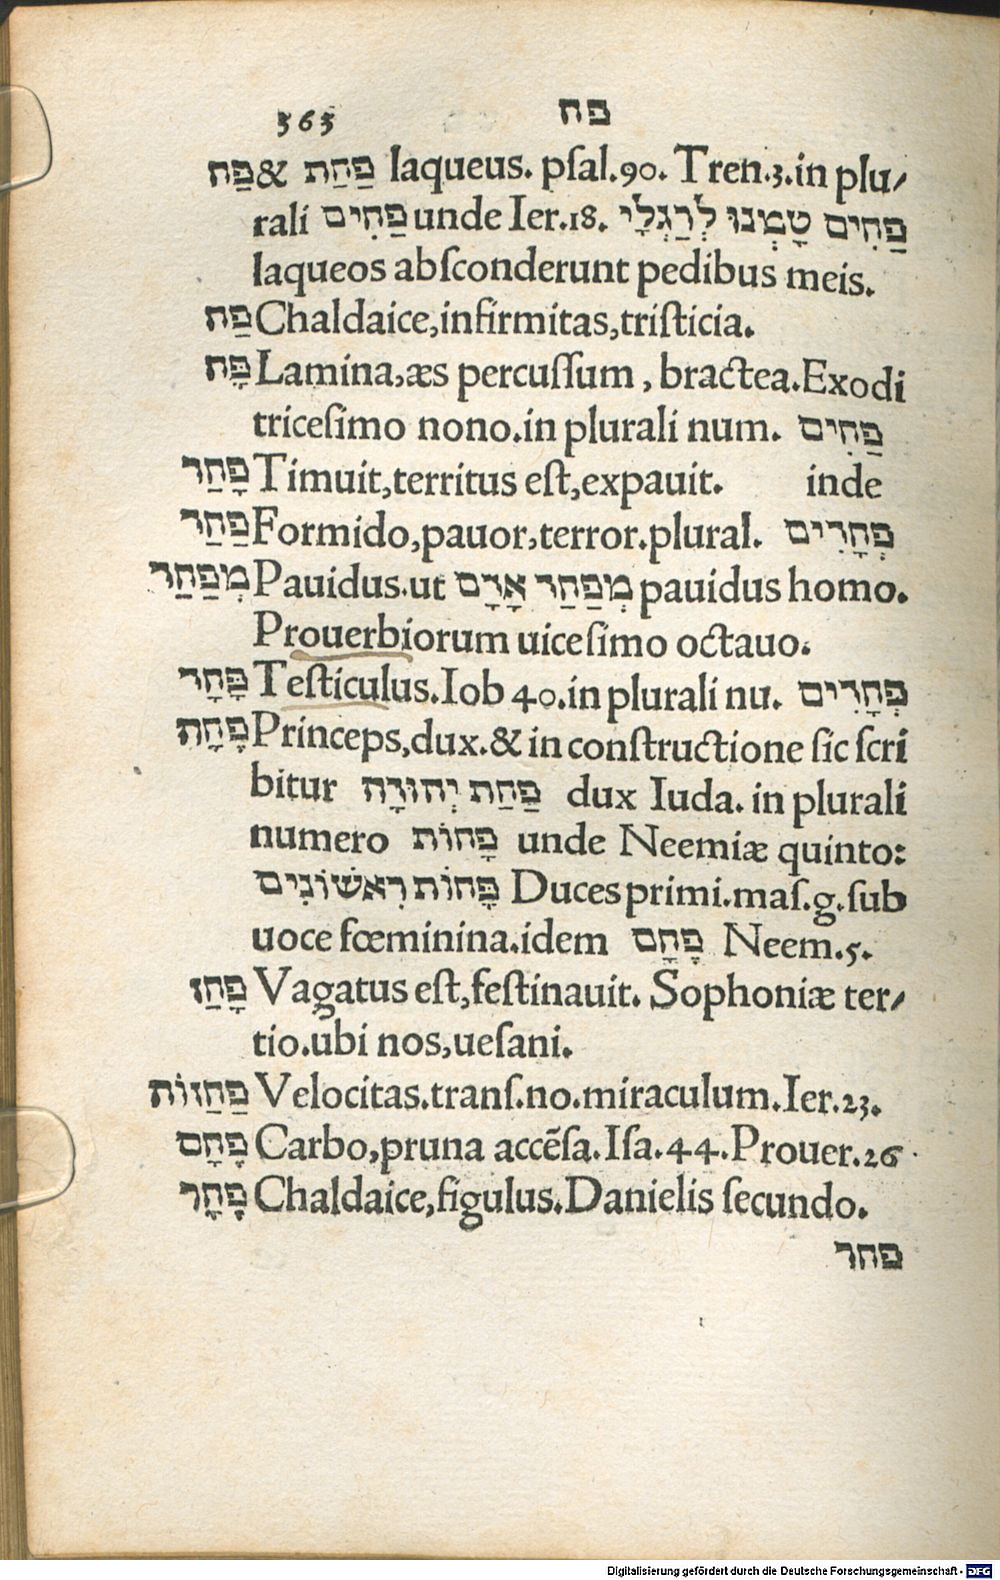 363 פח
פַּח & פַּחַת laqueus. pſal.90. Tren.3.in plu/
rali פַּחִים unde Ier.18. פַּחִים טָמְנוּ לְרַגְלָי
laqueos abſconderunt pedibus meis.
פַּח Chaldaice,infirmitas,triſticia.
פָּח Lamina,æs percuſſum, bractea.Exodi
triceſimo nono.in plurali num. פַּחִים
פָּחַד Timuit,territus eſt,expauit. inde
פַּחַד Formido,pauor,terror.plural. פְּחָדִים
מְפַחַד Pauidus.ut מְפַחַד אָדָם pauidus homo.
Prouerbiorum uiceſimo octauo.
פָּחָד Teſticulus.Iob 40.in plurali nu. פְּחָדִים
פֶּחָה Princeps,dux.& in conſtructione ſic ſcri
bitur פַּחַת יְהוּדָה dux Iuda. in plurali
numero פָּחוֹת unde Neemiæ quinto:
פָּחוֹת רִאשׁוֹנִים Duces primi.maſ.g.ſub
uoce fœminina.idem פֶּחָם Neem.5.
פָּחַז Vagatus eſt,feſtinauit. Sophoniæ ter/
tio.ubi nos,ueſani.
פַּחַזוּת Velocitas.tranſ.no.miraculum.Ier.23.
פֶּחָם Carbo,pruna accēſa.Iſa.44.Prouer.26.
פֶּחָר Chaldaice,figulus.Danielis ſecundo.
פחר
Digitalisierung gefördert durch die Deutsche Forschungsgemeinschaft - DFG